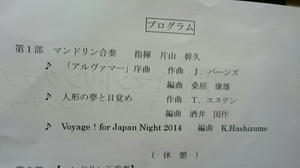 プログラム
第1部 マンドリン合奏 指揮 片山 幹久
♪ 「アルヴァマー」序曲 作曲 J. バーンズ
編曲 桑原 康雄
♪ 人形の夢と目覚め 作曲 T. エステン
編曲 酒井 国作
♪ Voyage ! for Japan Night 2014 編曲 K.Hashizume
( 休 憩 )